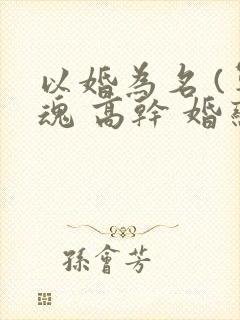 以婚為名(
魂 高幹 婚
孫會芳